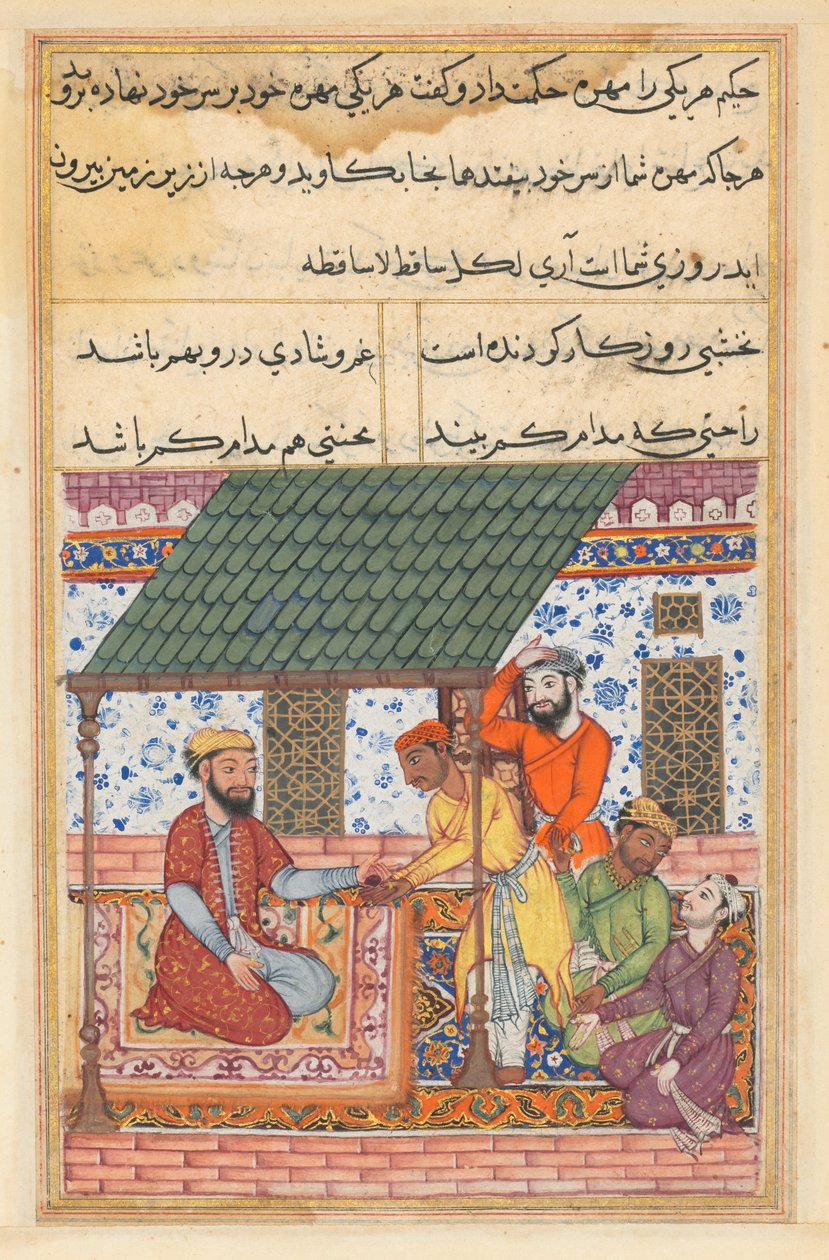 حکیم هر یکی را مهره حکمت داد و کفت هر یکی مهره خود بر سر خود نهاده بروید
هر جا که مهره شما از سر خود بیفتد هما نجا بکاوید و هرجه از زیر زمین بیرون
اید روزی شما است آری لکل ساقط لاساقطه
نخشبی روزکار کردنده است غم و شادی درو بهم باشد
راحتی که مدام کم بیند محنتی هم مدام کم باشد